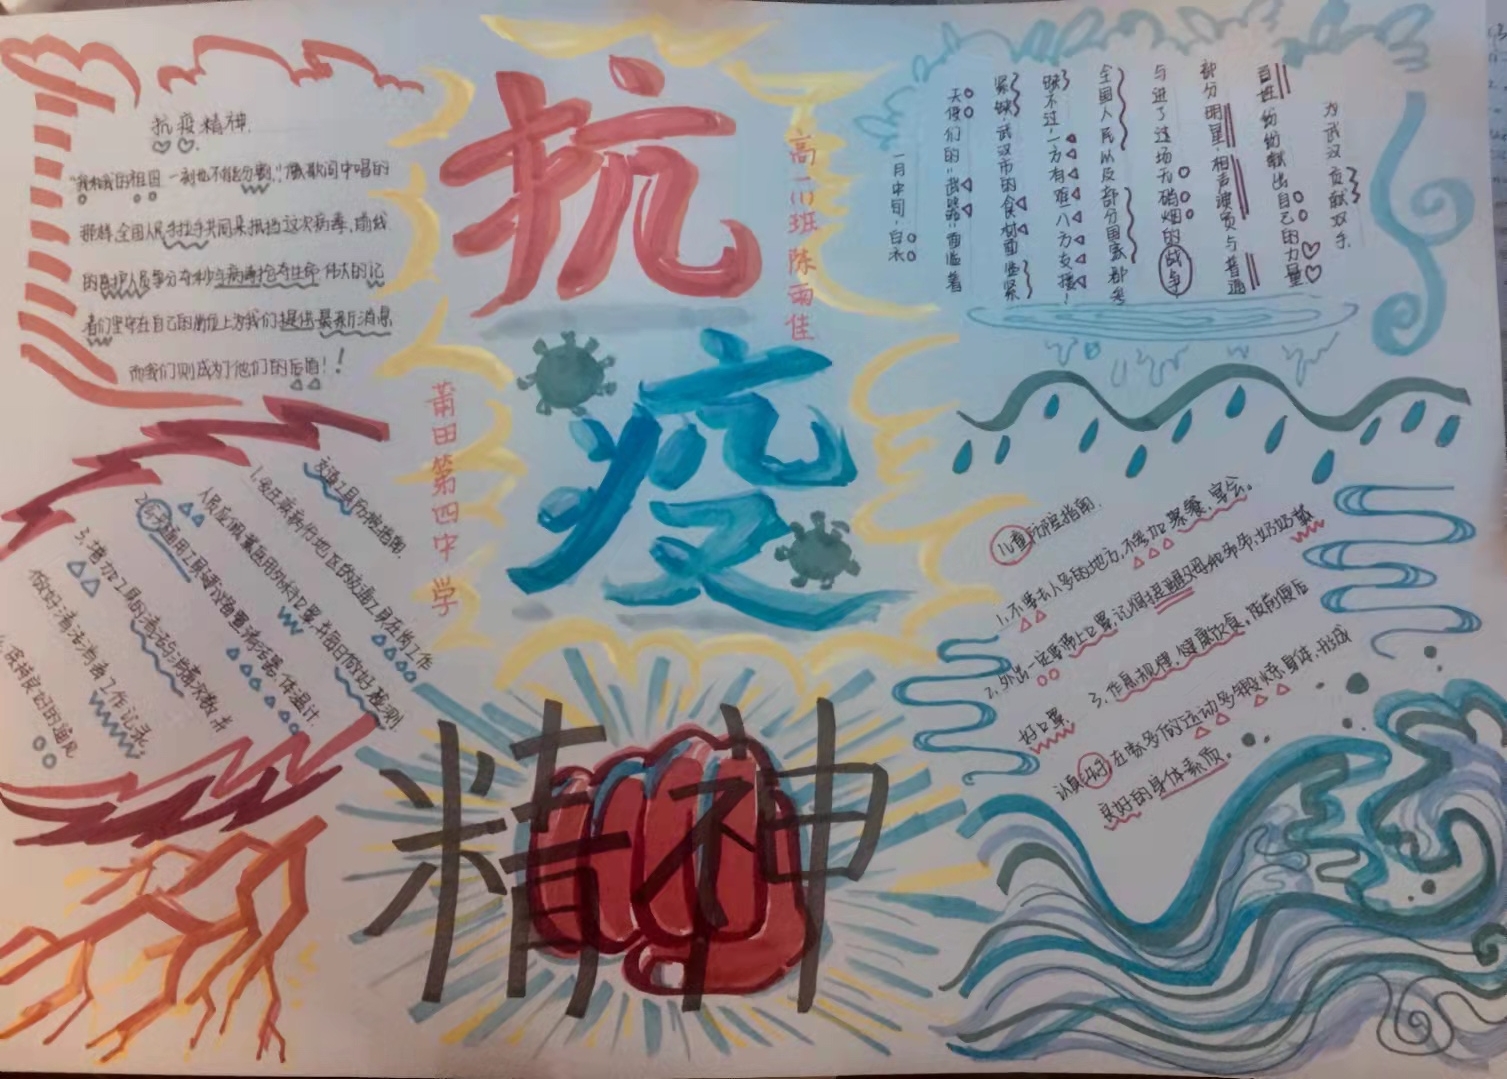 抗疫精神
抗疫精神.
"我和我的祖国一刻也不能分割."像歌词中唱的
那样,全国人民手拉手共同来抵挡这次病毒,前线
的医护人员争分夺秒与病毒抢夺生命伟大的记
者们坚守在自己的岗位上为我们提供最新消息
而我们则成为他们的后盾!!
高一(1)班 陈雨佳
莆田第四中学
为武汉贡献双手
自班纷纷献出自己的力量
部分明星,相声演员与普通
与进了这场为硝烟的战争
全国人民以及部分国家都参
缺不过,一方有难,八方支援!
紧缺武汉市的食材面临紧
天使们的"武器"面临着
一月中旬,白衣
交通工具防病指南.
1.发往疾病疫地区的交通工具在岗工作
人员应佩戴医用外科口罩,并每日做好检测
2.交通用工具建议配置消毒器,体温计
3.增加工具的清洁与消毒次数,并
做好清洁消毒工作记录,
保持良好的通风
儿童防疫指南.
1.不要去人多的地方,不参加聚餐,宴会。
2.外出一定要带上口罩,记得提醒父母和爷爷,奶奶戴
好口罩
3.作息规律,健康饮食,饭前便后
认真洗手
在家多作运动多锻炼身体,形成
良好的身体素质。